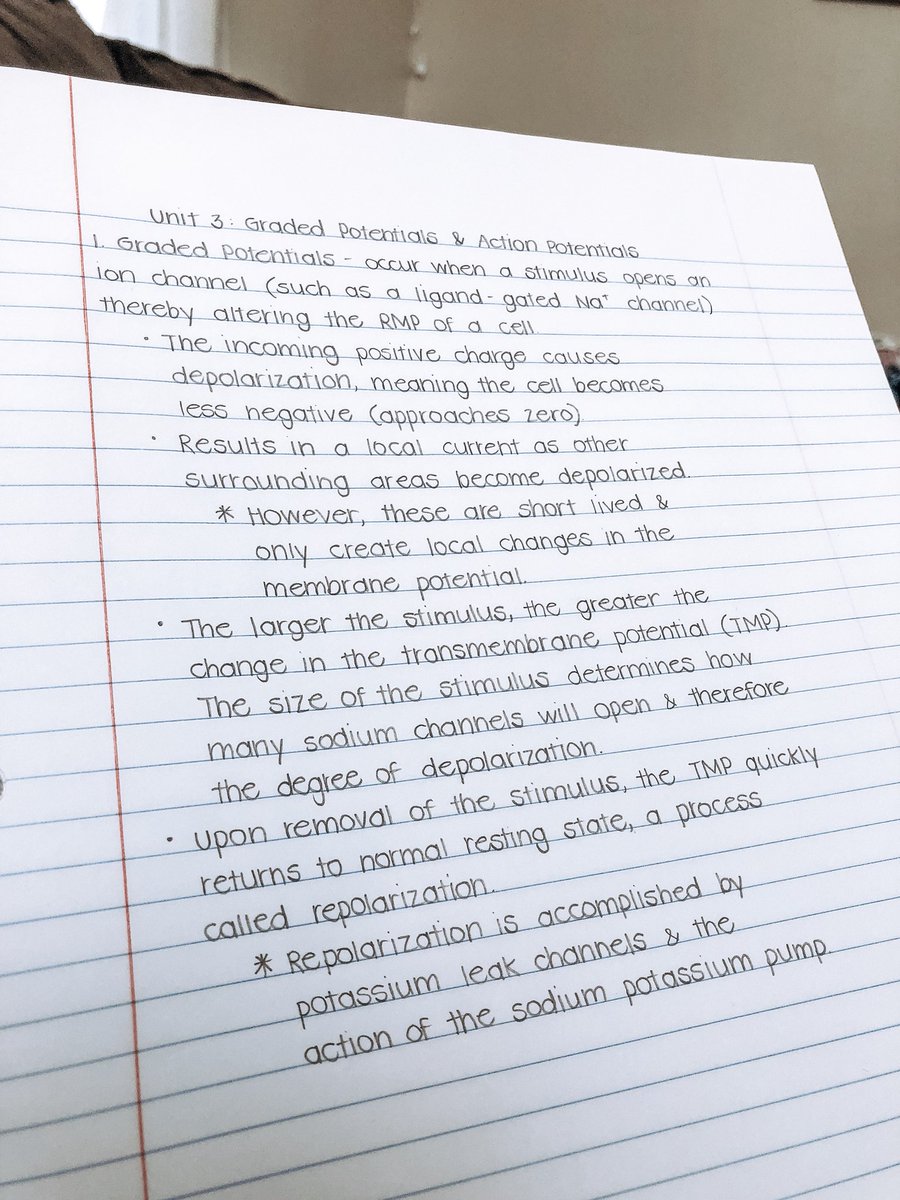 Unit 3: Graded Potentials & Action Potentials
1. Graded Potentials - occur when a stimulus opens an
ion channel (such as a ligand-gated Na⁺ channel)
thereby altering the RMP of a cell.
• The incoming positive charge causes
depolarization, meaning the cell becomes
less negative (approaches zero)
• Results in a local current as other
surrounding areas become depolarized.
* However, these are short lived &
only create local changes in the
membrane potential.
• The larger the stimulus, the greater the
change in the transmembrane potential (TMP).
The size of the stimulus determines how
many sodium channels will open & therefore
the degree of depolarization.
• Upon removal of the stimulus, the TMP quickly
returns to normal resting state, a process
called repolarization.
* Repolarization is accomplished by
potassium leak channels & the
action of the sodium potassium pump.